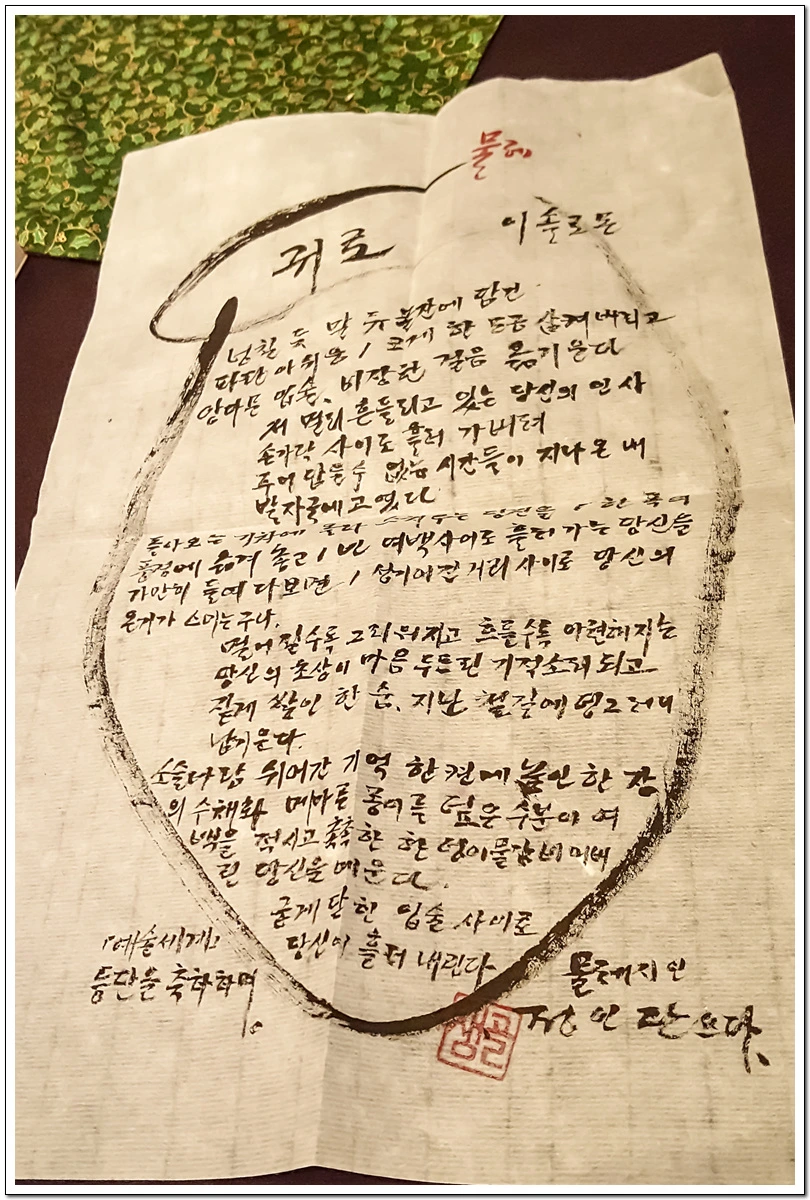 물레
이솔로몬
귀로
넘칠 듯 말 듀 물잔에 담긴
파단 아쉬움 / 크게 한 모금 삼켜버리고
앙다문 입술, 비장한 걸음 옮기운다
저 멀리 흔들리고 있는 당신의 인사
손가락 사이로 흘러 가버려
주어 담을 수 없는 시간들이 지나온 내
발자국에 고였다
돌아오는 기차에 몰라 스쳐가는 당신을 / 한 폭의
풍경에 옮겨 놓고 / 빈 여백사이로 흘러가는 당신을
가만히 들여다보면 / 성기어진 거리 사이로 당신의
온기가 스미는구나.
멀어질수록 그리워지고 흐를수록 아련해지는
당신의 초상이 마음 두드린 기적소리 되고
짙게 쌓인 한 숨, 지난 철길에 덩그러니
남기운다.
소슬바람 쉬어간 기억 한켠에 놓인 한 장
의 수채화 메마른 종이를 덮은 수분이 여
백을 적시고 촉촉한 한 덩이 물감 네 미버
린 당신을 메운다.
굳게 닫힌 입술 사이로
당신이 흘러 내린다
「예술세계」
등단을 축하하며
물레지인
정인 단쓰다.